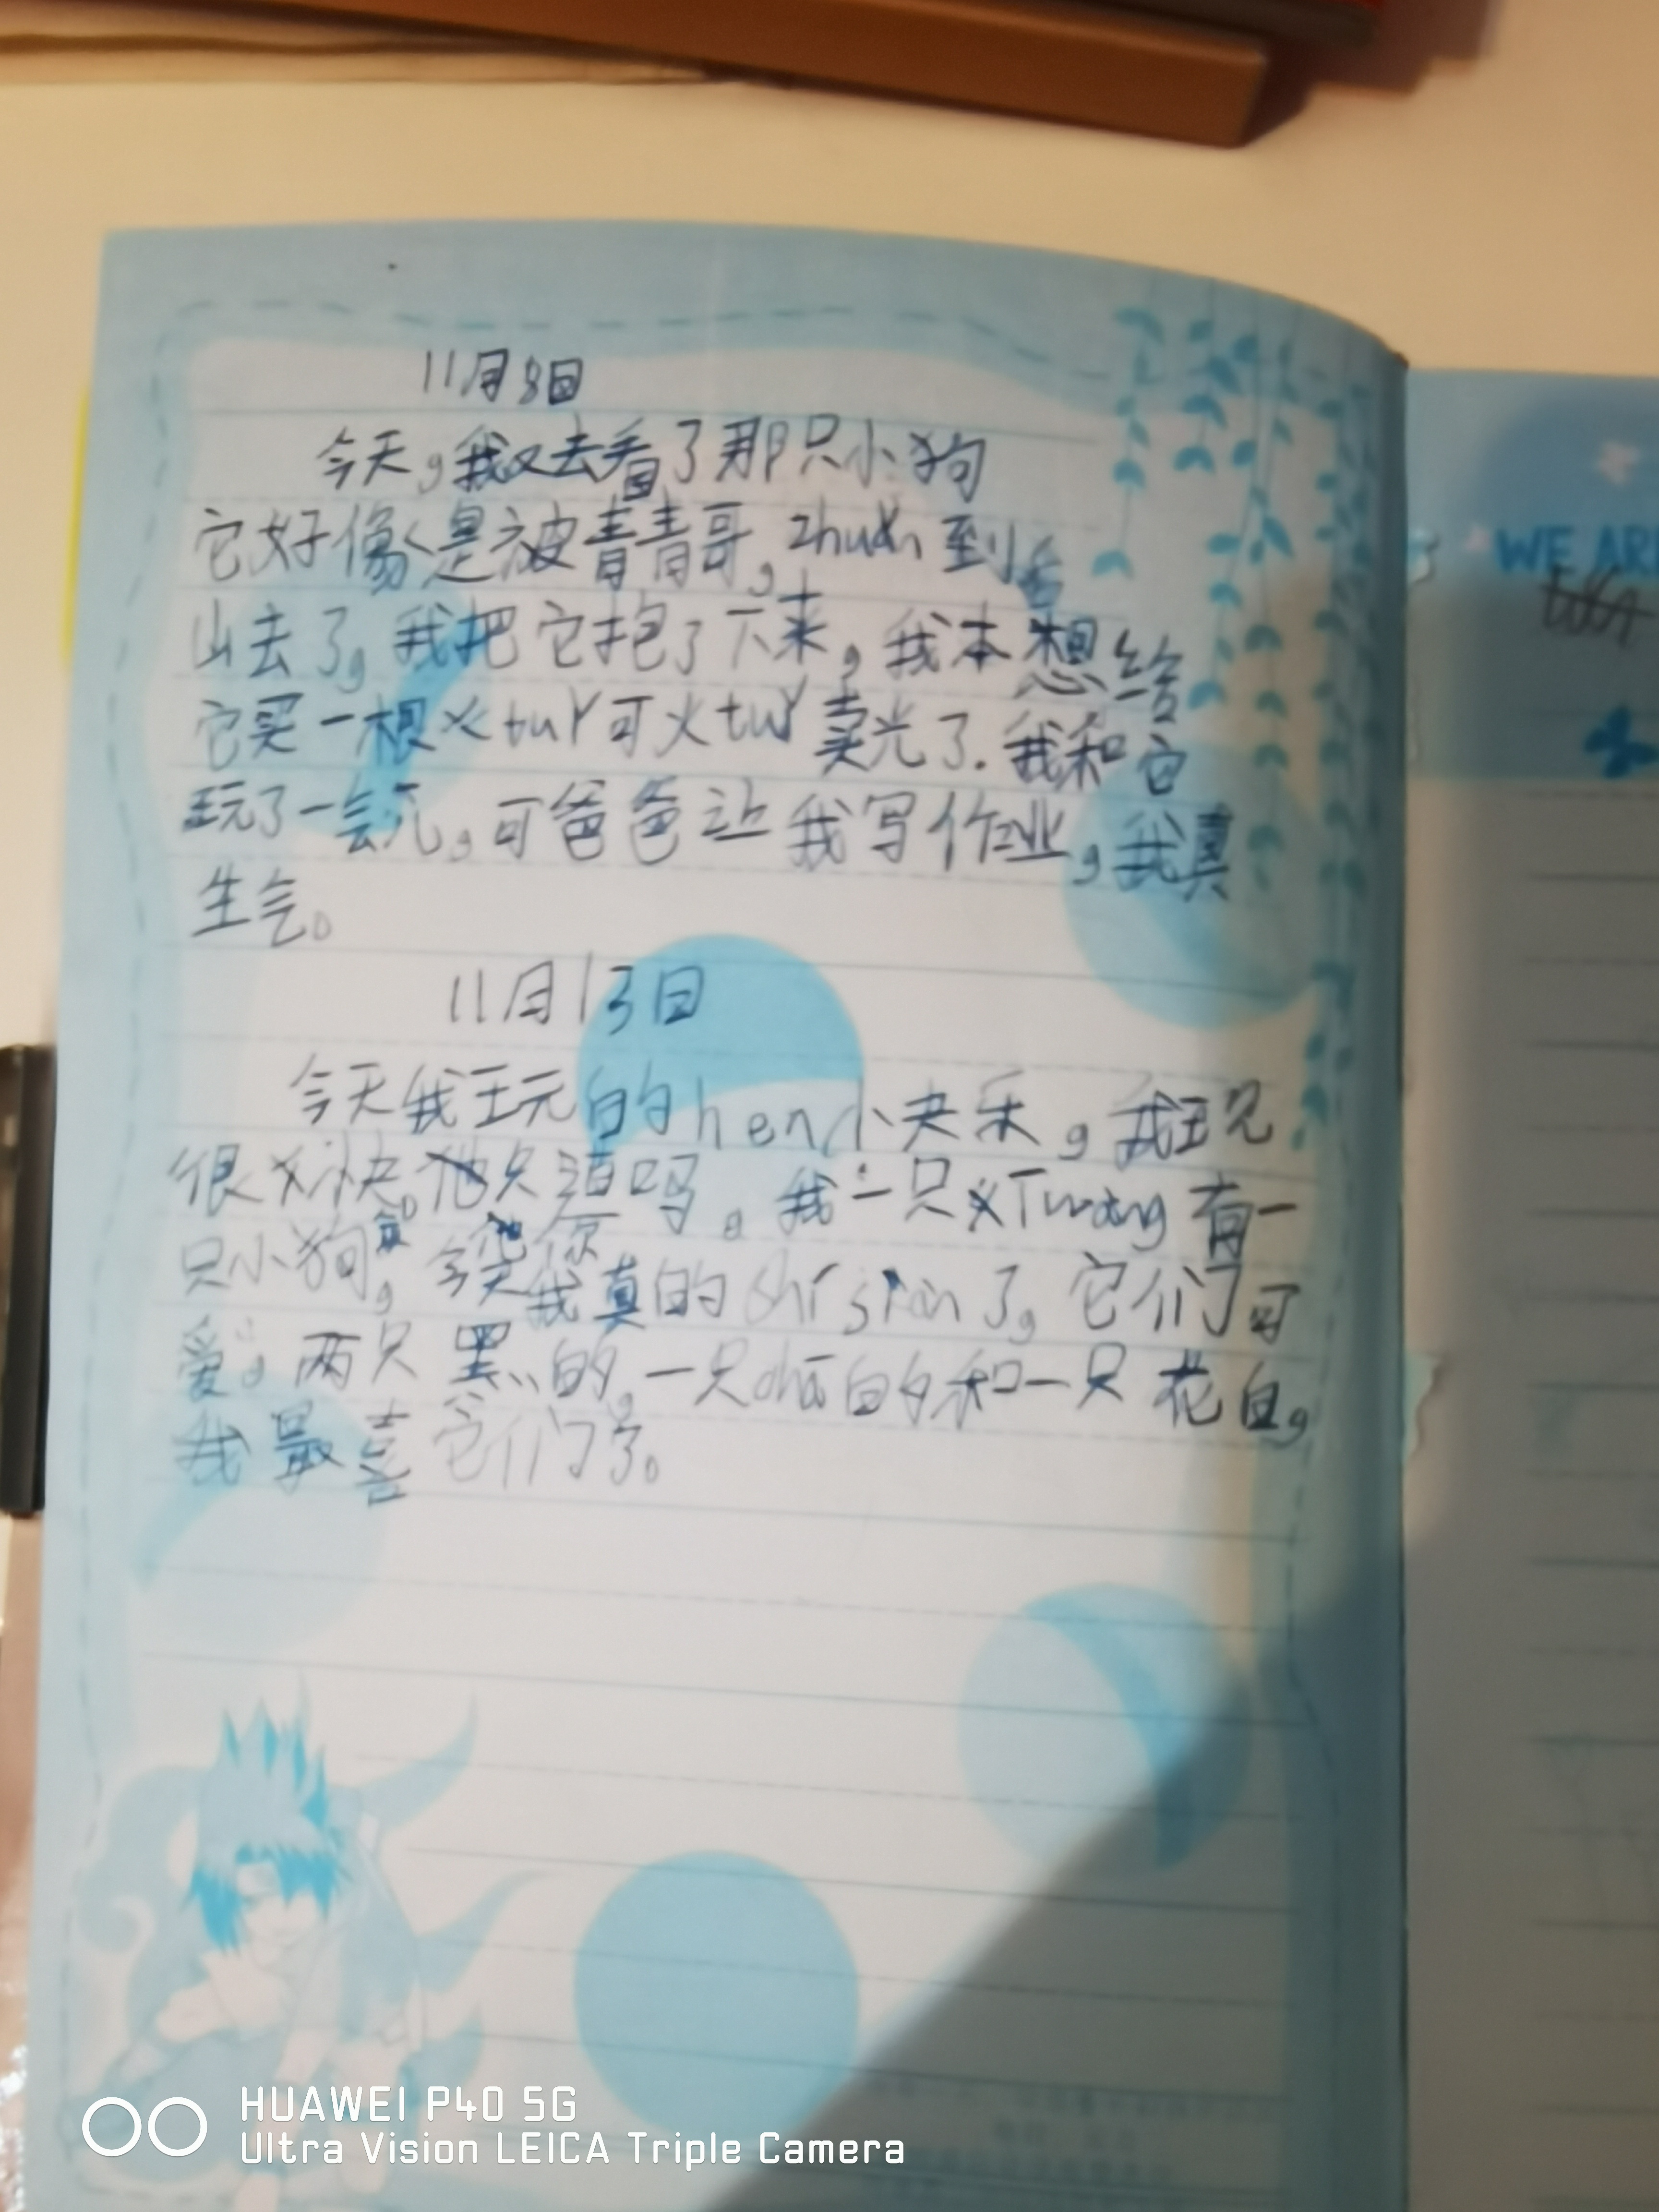 11月8日
今天,我又去看了那只小狗
它好像是被青青哥,zhuài到后
山去了,我把它抱了下来,我本想给
它买一根火tuǐ可火tuǐ卖光了.我和它
玩了一会儿,可爸爸让我写作业,我真
生气。
11月13日
今天我玩的hen快乐,我玩
很 快。 吗,我 一只 有一
只小狗,今天我真的 了,它们可
爱,两只黑的,一只 白的和一只花白,
我最喜它们了。
WE ARE
HUAWEI P40 5G
Ultra Vision LEICA Triple Camera